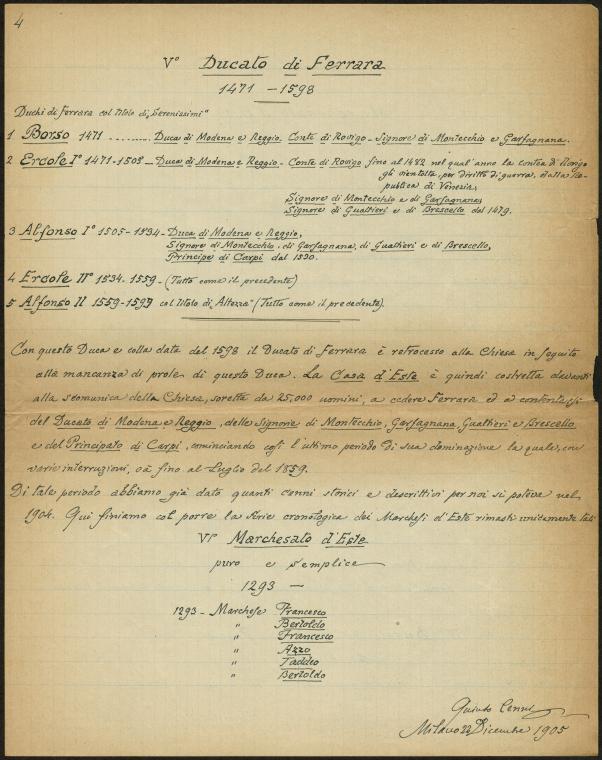 4
V° Ducato di Ferrara
1471 - 1598
Duchi di Ferrara col titolo di "Serenissimi"
1 Borso 1471 .......... Duca di Modena e Reggio. Conte di Rovigo - Signore di Montecchio e Garfagnana.
2 Ercole I° 1471-1505 - Duca di Modena e Reggio - Conte di Rovigo fino al 1482 nel qual'anno la contea di Rovigo
gli vien tolta, per diritto di guerra, dalla Re-
publica di Venezia,
Signore di Montecchio e di Garfagnana,
Signore di Gualtieri e di Brescello dal 1479.
3 Alfonso I° 1505-1534 - Duca di Modena e Reggio,
Signore di Montecchio, di Garfagnana, di Gualtieri e di Brescello,
Principe di Carpi dal 1530.
4 Ercole II° 1534. 1559 - (Tutto come il precedente)
5 Alfonso II 1559-1597 col titolo di "Altezza" (Tutto come il precedente).
Con questo Duca e colla data del 1598 il Ducato di Ferrara è retrocesso alla Chiesa in seguito
alla mancanza di prole di questo Duca. La Casa d'Este è quindi costretta davanti
alla scomunica della Chiesa, soretta da 25,000 uomini, a cedere Ferrara ed a contentarsi
del Ducato di Modena e Reggio, delle Signorie di Montecchio, Garfagnana, Gualtieri e Brescello
e del Principato di Carpi, cominciando così l'ultimo periodo di sua dominazione la quale, con
varie interruzioni, va fino al Luglio del 1859.
Di tale periodo abbiamo già dato quanti cenni storici e descrittivi per noi si poteva nel
1904. Qui finiamo col porre la serie cronologica dei Marchesi d'Este rimasti unicamente tali
VI° Marchesato d'Este
puro e semplice
1293 -
1293 - Marchese Francesco
" Bertoldo
" Francesco
" Azzo
" Taddeo
" Bertoldo
Quinto Cenni
Milano 22 Dicembre 1905